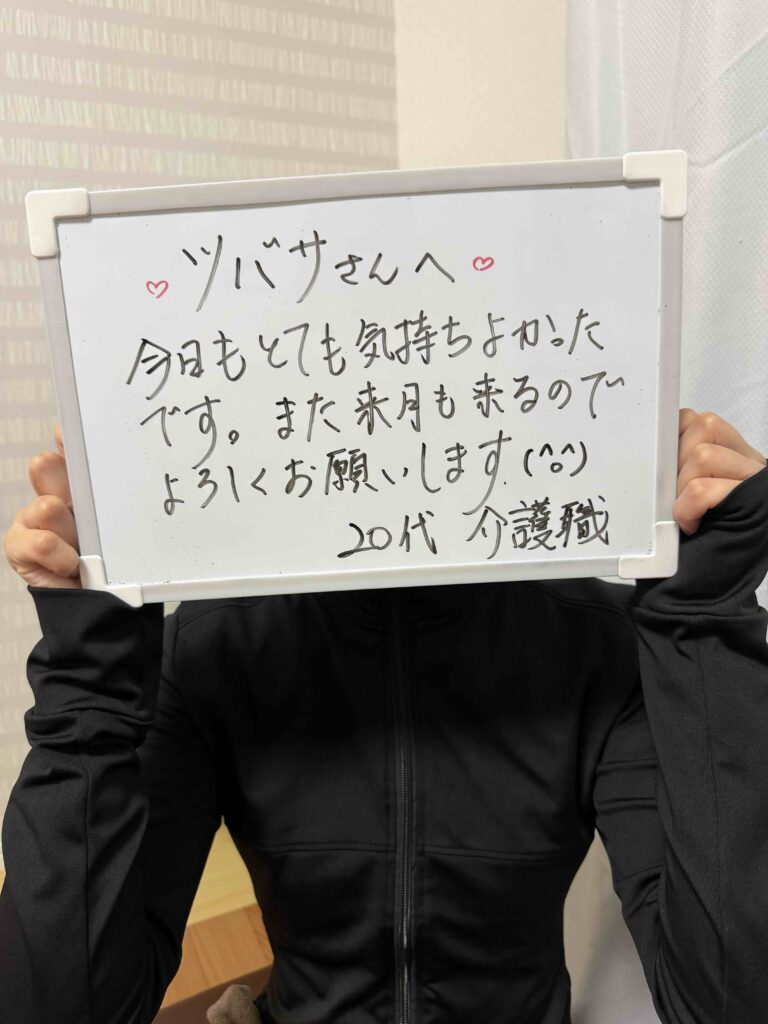 ♡ ツバサさんへ ♡
今日もとても気持ちよかった
です。また来月も来るので
よろしくお願いします.(^o^)
20代 介護職